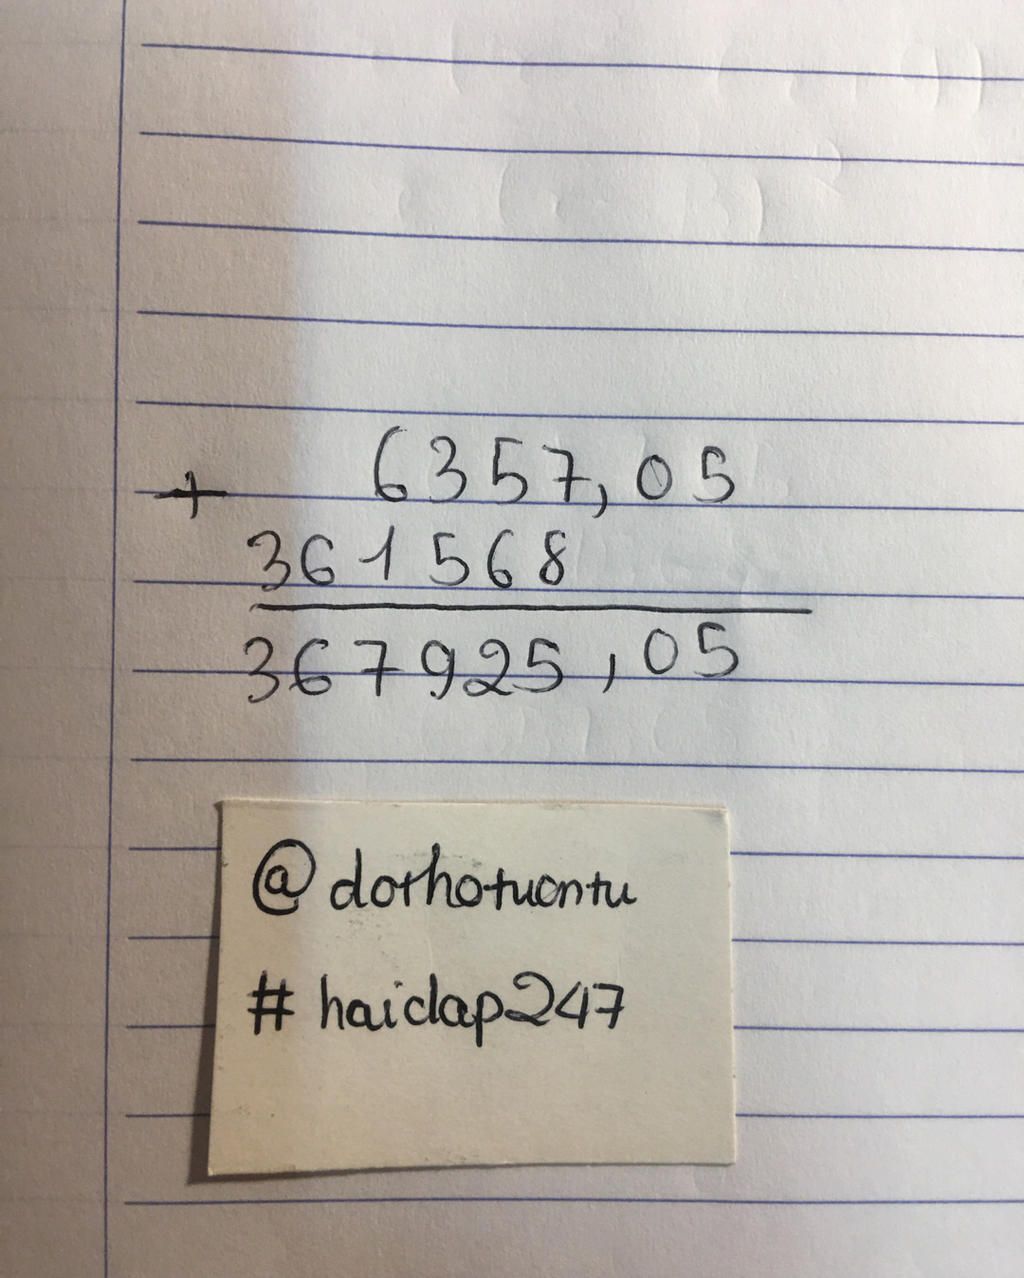 6357,05
+
361568
367925,05
@dothotuontu
#haidap247